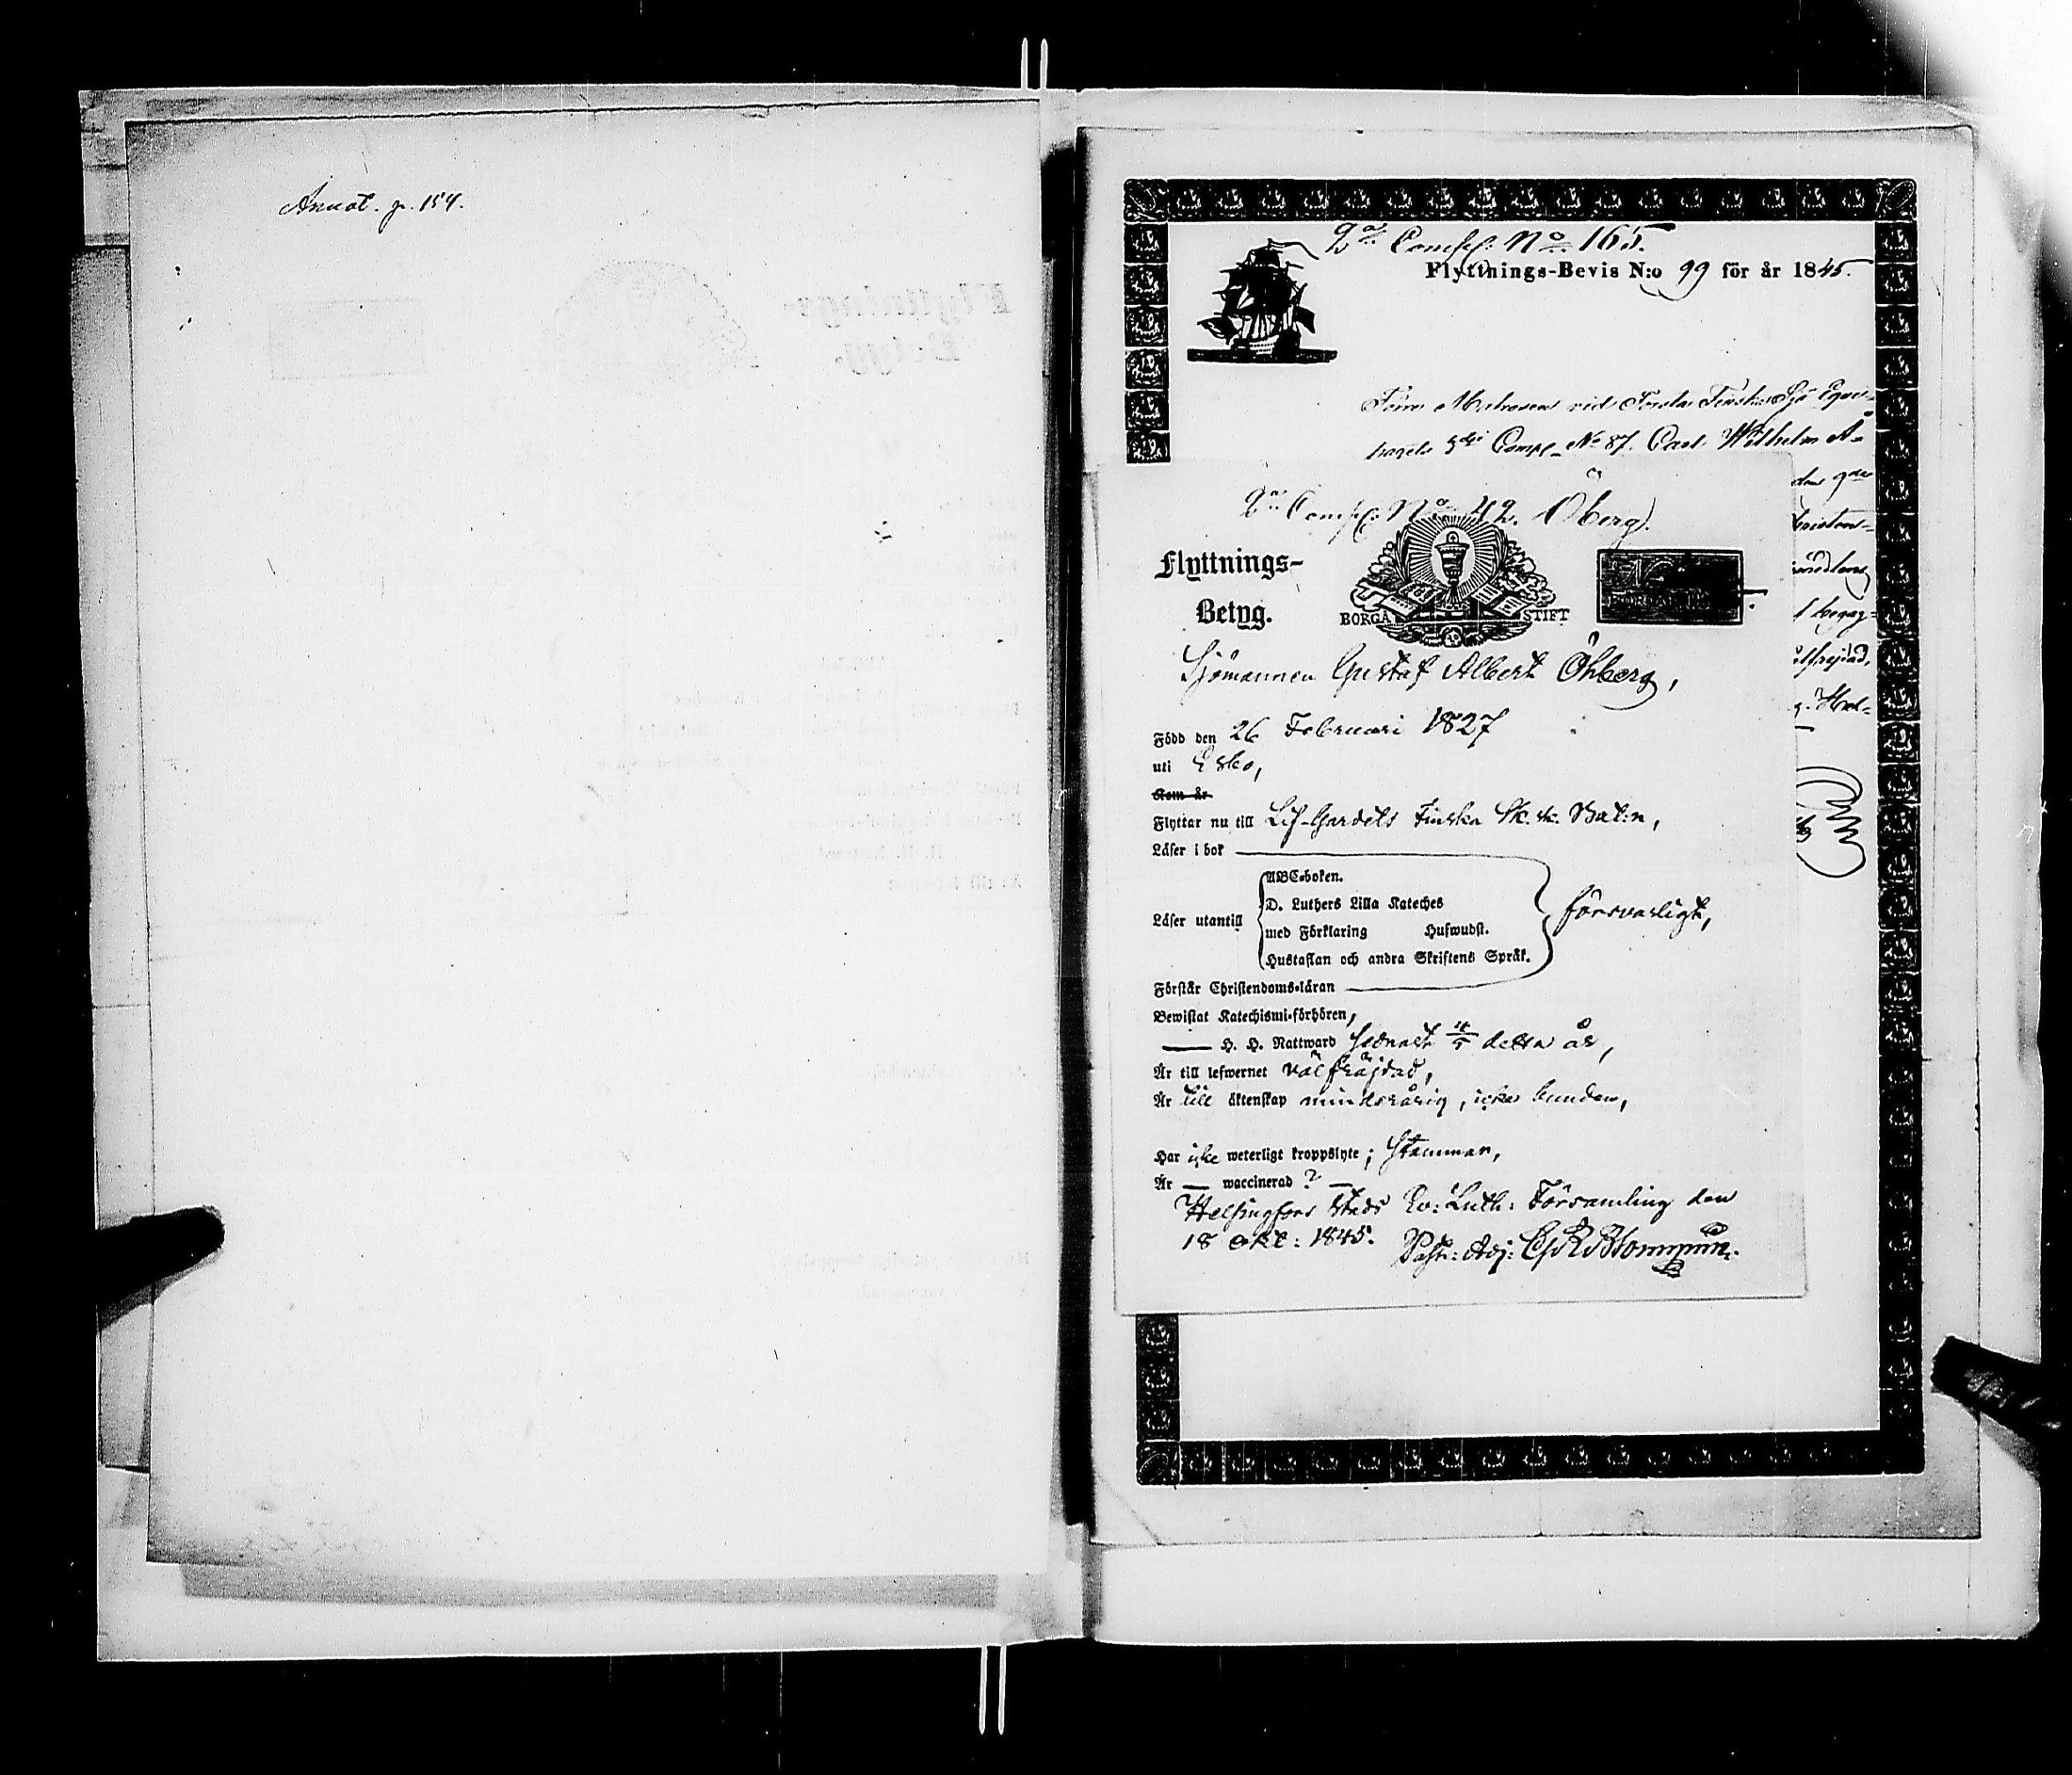 Annot. p. 154.
2:a Comp: No 165.
Flyttnings-Bevis N:o 99 för år 1845.
Förre Matrosen vid Första Finska Sjö Equi-
pagets Comp. No 87. Carl Wilhelm
2:a Comp: No 42. Öberg).
Flyttnings-
Betyg.
BORGÅ STIFT
Sjömannen Gustaf Albert Öhberg,
Född den 26 Februari 1827
uti Esbo,
Kom år
Flyttar nu till Lif-Gardets Finska Sk. sk. Bat:n,
Läser i bok
ABC-boken.
D. Luthers Lilla Kateches
Läser utantill med Förklaring Hufwudst. försvarligt,
Hustaflan och andra Skriftens Språk.
Förstår Christendoms-läran
Bewistat Katechismi-förhören,
— H. H. Nattward sednast detta år,
Är till lefwernet välfräjdad,
Är till äktenskap minderårig, icke bunden,
Har icke weterligt kroppslyte; stammar,
Är — waccinerad ? —
Helsingfors Stads Ev: Luth: Församling den
18 Okt: 1845. Past: Adj: